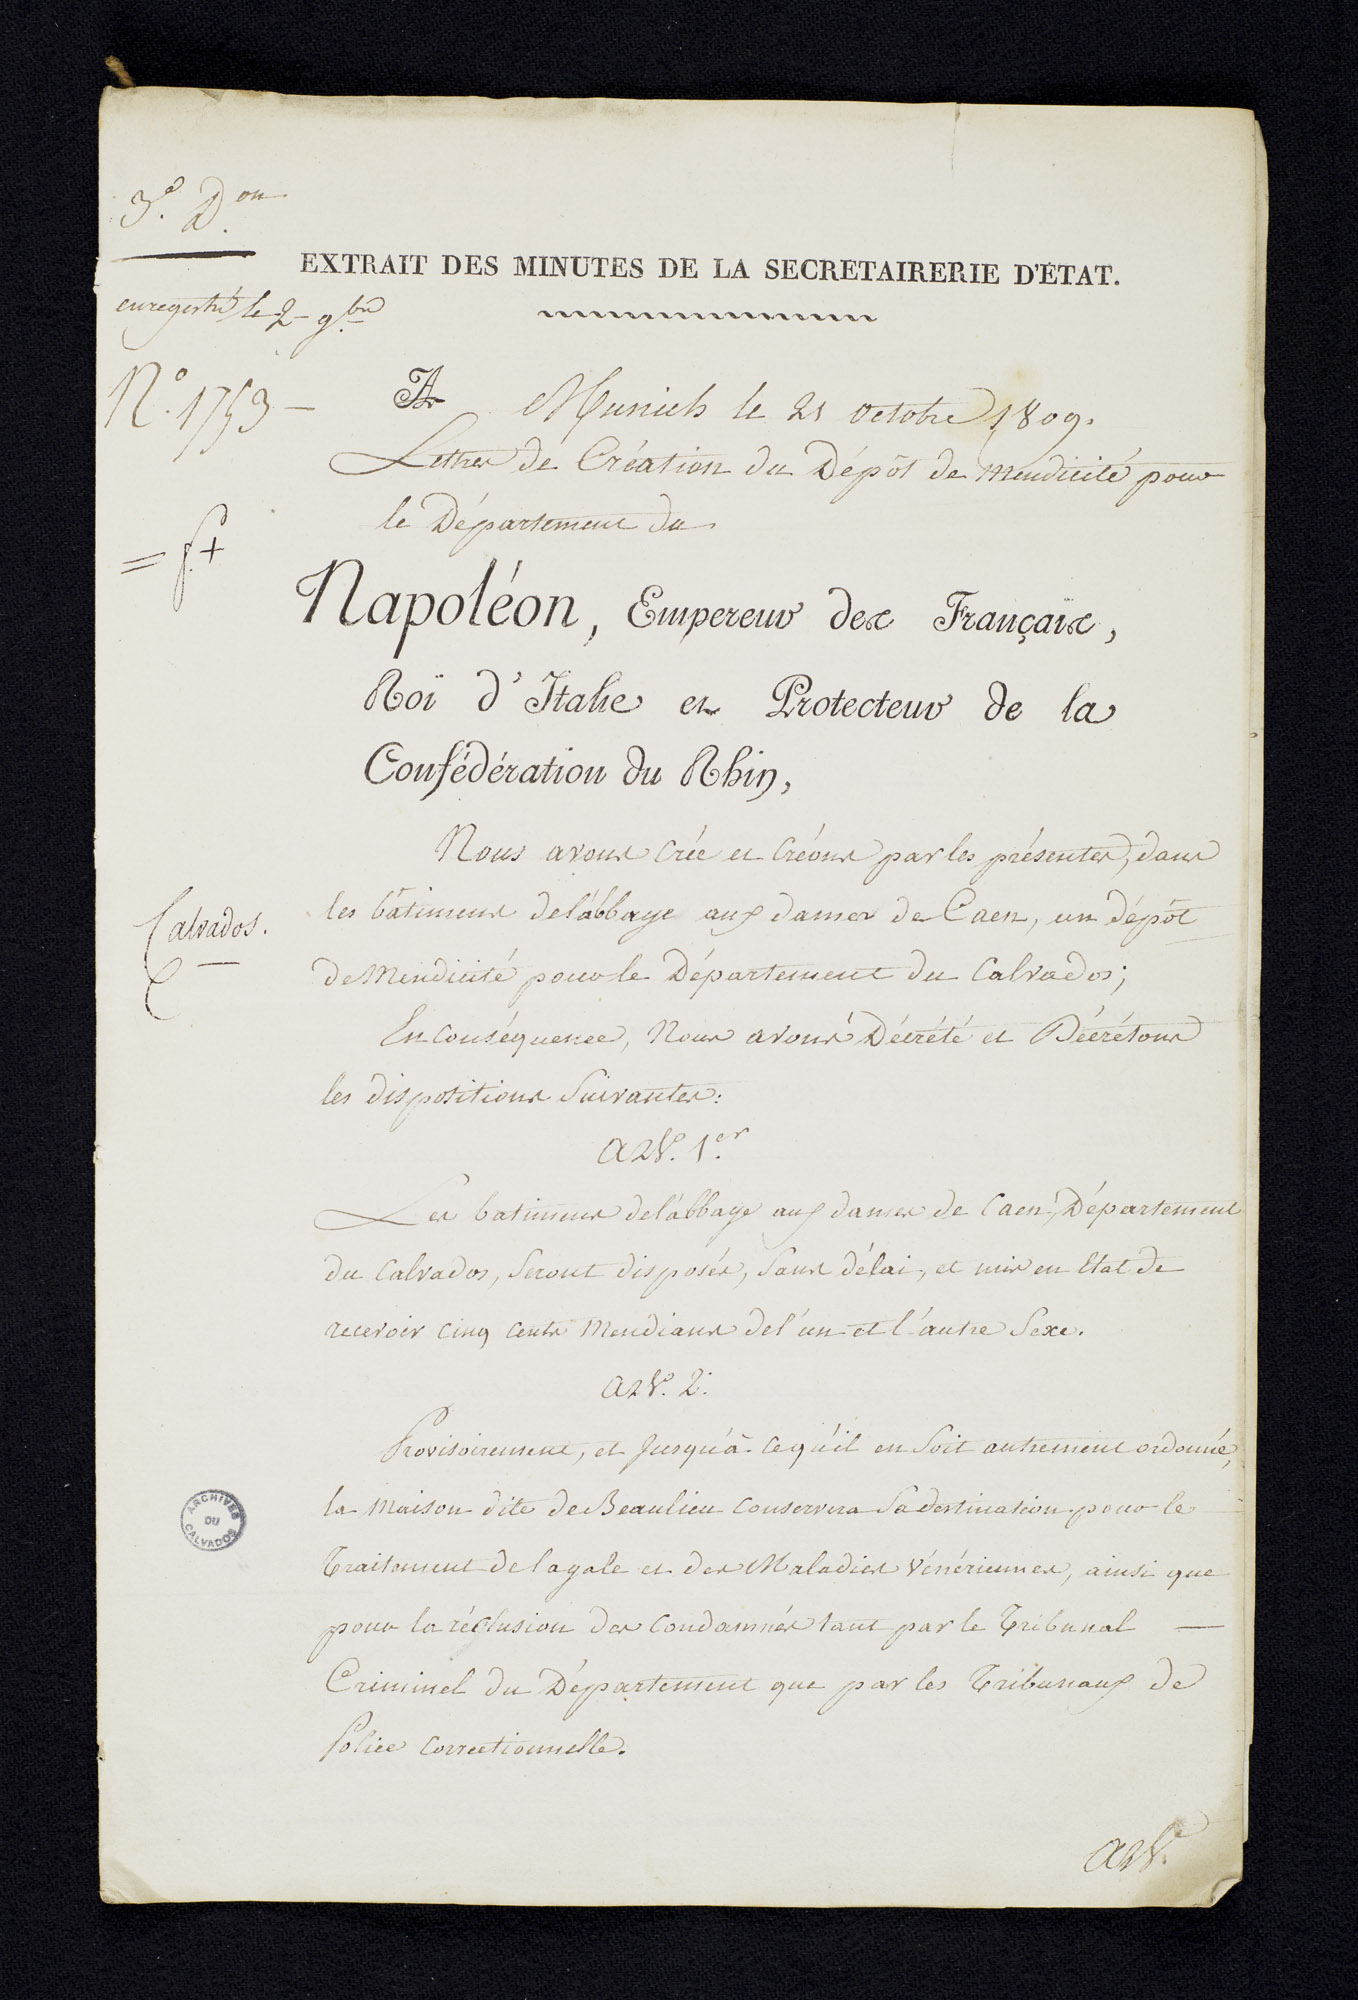 3.e D.on
EXTRAIT DES MINUTES DE LA SECRETAIRERIE D'ÉTAT.
enregistré le 2 9.bre
N.o 1753
A Munich le 21 octobre 1809.
Lettres de Création du Dépôt de Mendicité pour
le Département du
Napoléon, Empereur des Français,
Roi d'Italie et Protecteur de la
Confédération du Rhin,
Nous avons créé et créons par les présentes, dans
Calvados.
les bâtimens de l'abbaye aux dames de Caen, un dépôt
de Mendicité pour le Département du Calvados;
En conséquence, Nous avons Décrété et Décrétons
les dispositions Suivantes:
Art. 1.er
Les batimens de l'abbaye aux dames de Caen, Département
du Calvados, Seront disposés, Sans délai, et mis en Etat de
recevoir cinq cents Mendians de l'un et l'autre Sexe.
Art. 2.
Provisoirement, et jusqu'à ce qu'il en Soit autrement ordonné,
la Maison dite de Beaulieu conservera Sa destination pour le
Traitement de la gale et des Maladies Vénériennes, ainsi que
pour la réclusion des Condamnés tant par le Tribunal
Criminel du Département que par les Tribunaux de
Police Correctionnelle.
ARCHIVES DU CALVADOS
Art.